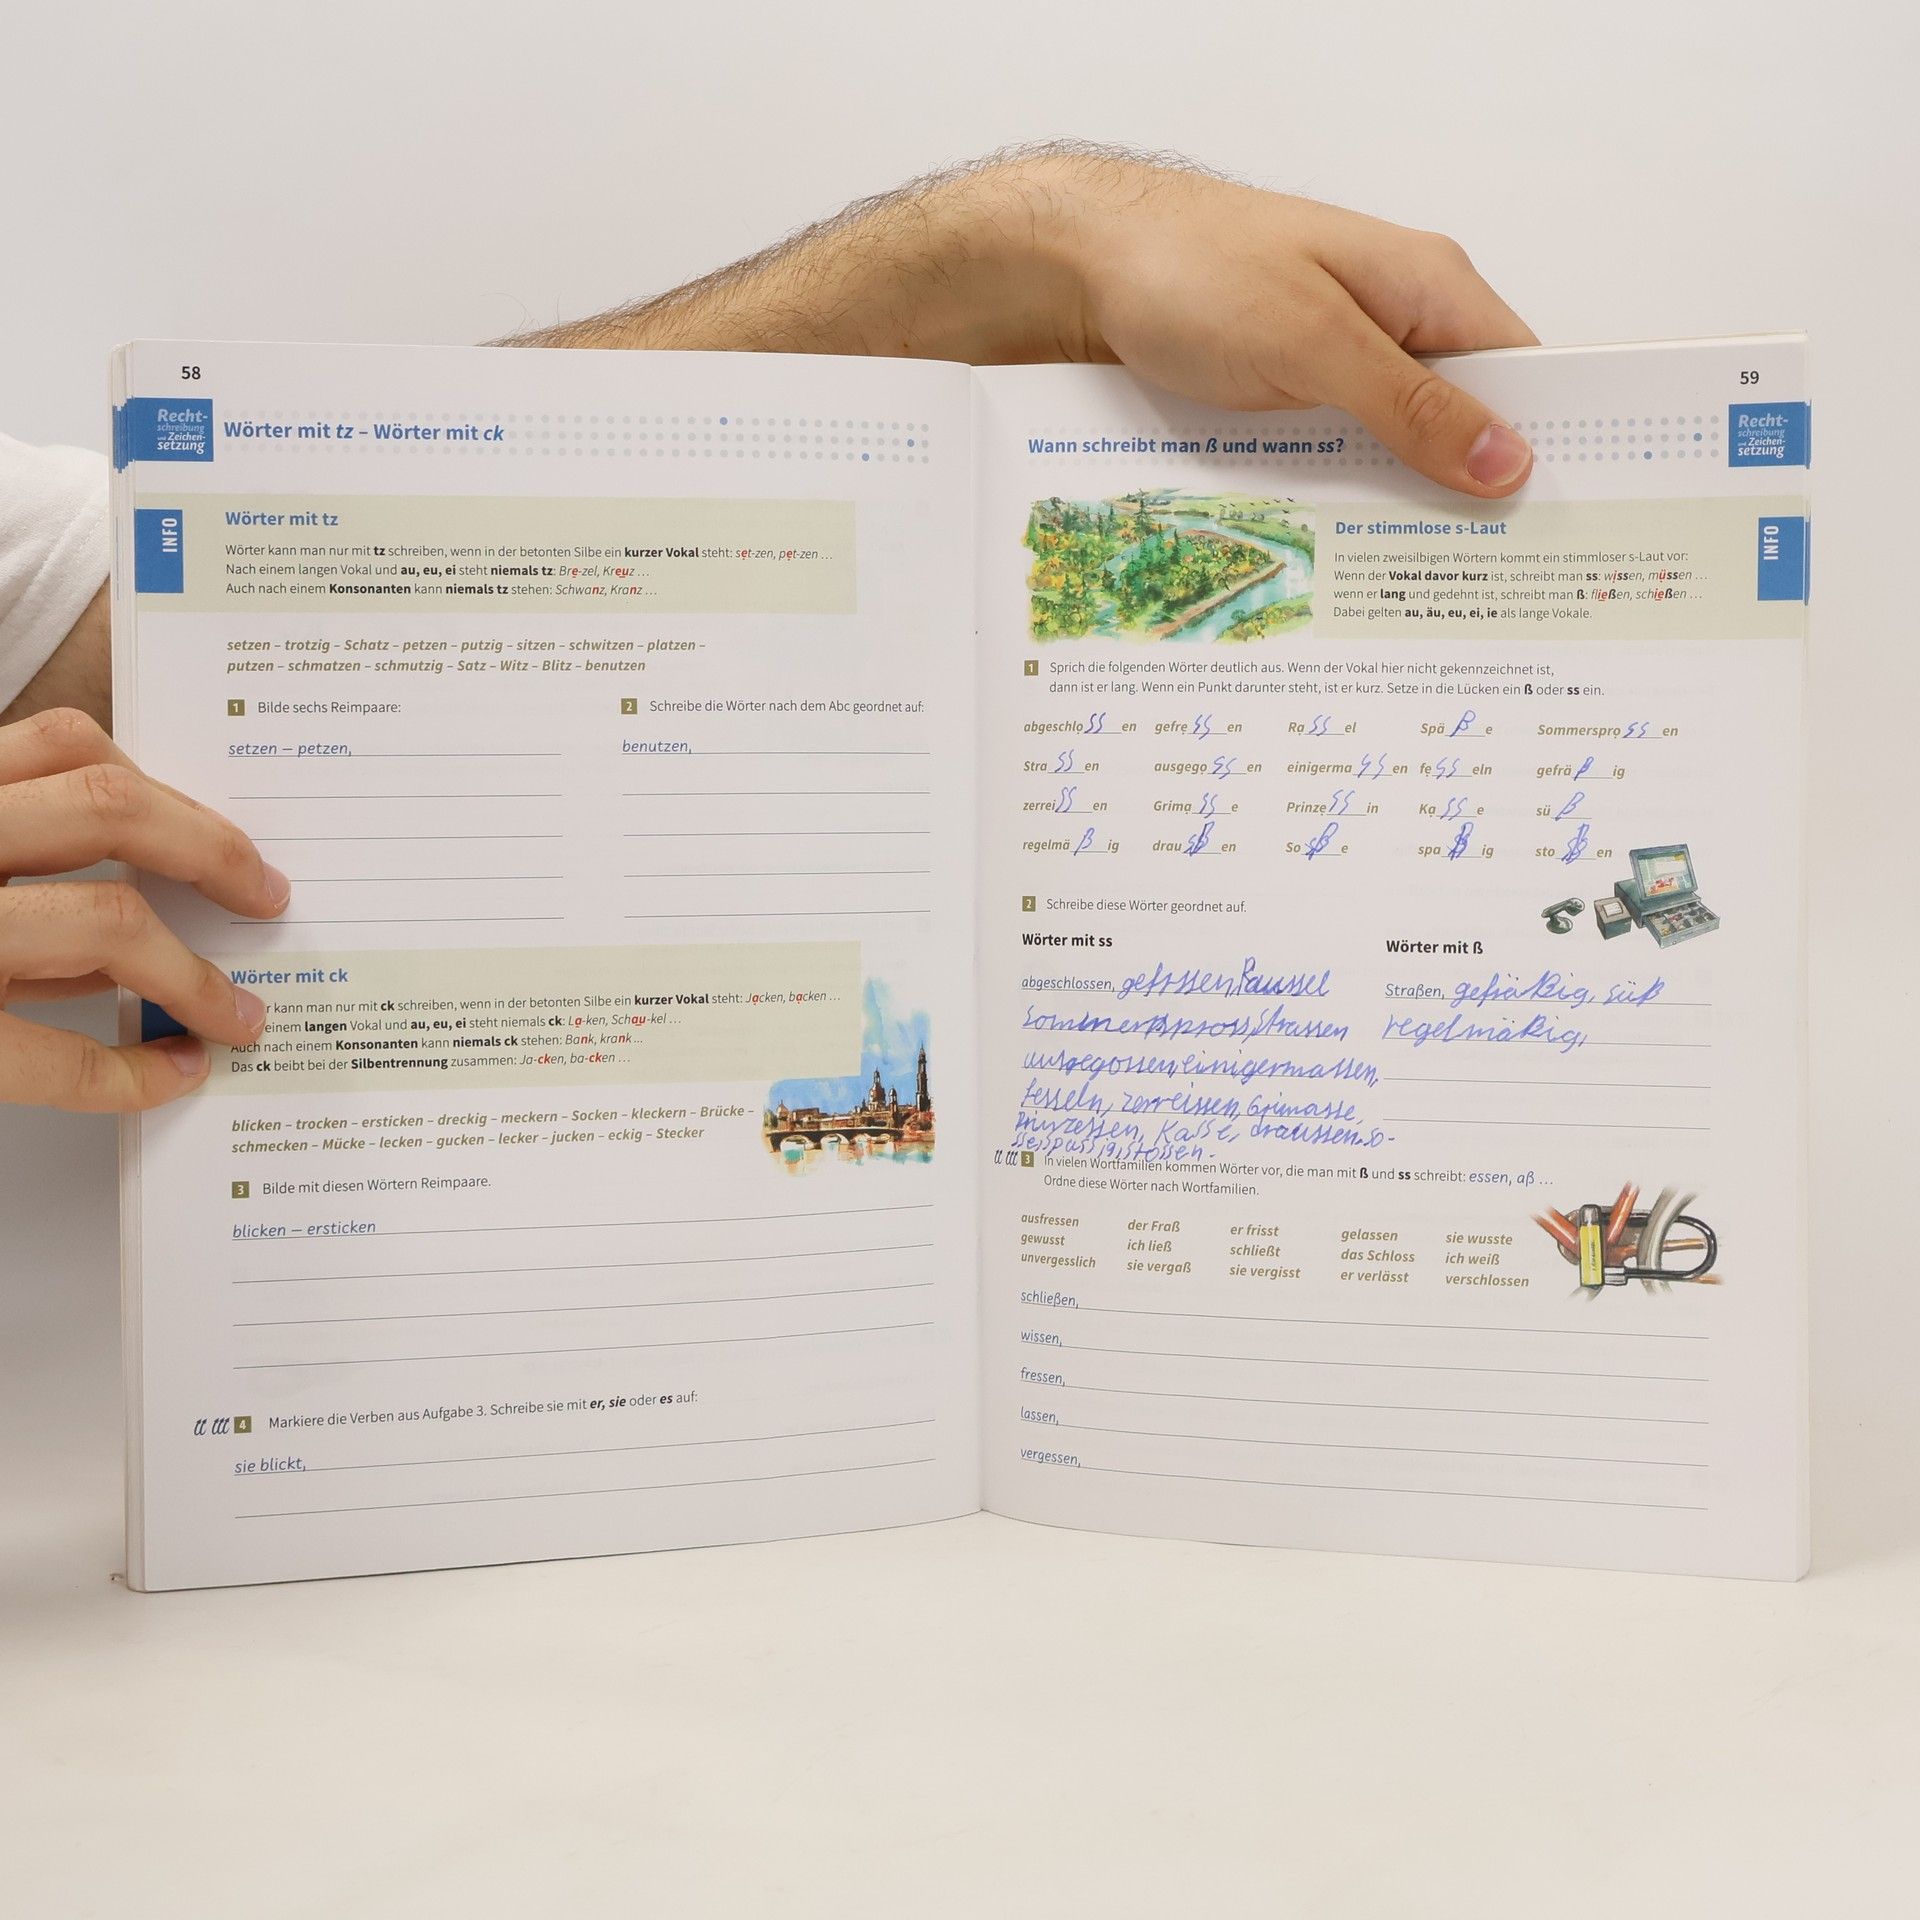 58
Recht-
schreibung
und Zeichen-
setzung
Wörter mit tz – Wörter mit ck
INFO
Wörter mit tz
Wörter kann man nur mit tz schreiben, wenn in der betonten Silbe ein kurzer Vokal steht: set-zen, pet-zen ...
Nach einem langen Vokal und au, eu, ei steht niemals tz: Bre-zel, Kreuz ...
Auch nach einem Konsonanten kann niemals tz stehen: Schwanz, Kranz ...
setzen – trotzig – Schatz – petzen – putzig – sitzen – schwitzen – platzen –
putzen – schmatzen – schmutzig – Satz – Witz – Blitz – benutzen
1 Bilde sechs Reimpaare:
setzen – petzen,
2 Schreibe die Wörter nach dem Abc geordnet auf:
benutzen,
Wörter mit ck
r kann man nur mit ck schreiben, wenn in der betonten Silbe ein kurzer Vokal steht: Jacken, backen ...
einem langen Vokal und au, eu, ei steht niemals ck: La-ken, Schau-kel ...
Auch nach einem Konsonanten kann niemals ck stehen: Bank, krank ...
Das ck beibt bei der Silbentrennung zusammen: Ja-cken, ba-cken ...
blicken – trocken – ersticken – dreckig – meckern – Socken – kleckern – Brücke –
schmecken – Mücke – lecken – gucken – lecker – jucken – eckig – Stecker
3 Bilde mit diesen Wörtern Reimpaare.
blicken – ersticken
4 Markiere die Verben aus Aufgabe 3. Schreibe sie mit er, sie oder es auf:
sie blickt,
59
Recht-
schreibung
und Zeichen-
setzung
Wann schreibt man ß und wann ss?
INFO
Der stimmlose s-Laut
In vielen zweisilbigen Wörtern kommt ein stimmloser s-Laut vor:
Wenn der Vokal davor kurz ist, schreibt man ss: wissen, müssen ...
wenn er lang und gedehnt ist, schreibt man ß: fließen, schießen ...
Dabei gelten au, äu, eu, ei, ie als lange Vokale.
1 Sprich die folgenden Wörter deutlich aus. Wenn der Vokal hier nicht gekennzeichnet ist,
dann ist er lang. Wenn ein Punkt darunter steht, ist er kurz. Setze in die Lücken ein ß oder ss ein.
abgeschlo ss en gefre ss en Ra ss el Spä ß e Sommerspro ss en
Stra ss en ausgego ss en einigerma ss en fe ss eln gefrä ß ig
zerrei ss en Grima ss e Prinze ss in Ka ss e sü ß
regelmä ß ig drau ß en So ß e spa ß ig sto ß en
2 Schreibe diese Wörter geordnet auf.
Wörter mit ss
abgeschlossen,
Strassen
ausgegossen, einigermassen,
fesseln, zerreissen, Grimasse,
Prinzessen, Kasse, draussen. So-
sse, spassig, stossen.
Wörter mit ß
Straßen, gefräßig, süß
regelmäßig,
3 In vielen Wortfamilien kommen Wörter vor, die man mit ß und ss schreibt: essen, aß ...
Ordne diese Wörter nach Wortfamilien.
ausfressen der Fraß er frisst gelassen sie wusste
gewusst ich ließ schließt das Schloss ich weiß
unvergesslich sie vergaß sie vergisst er verlässt verschlossen
schließen,
wissen,
fressen,
lassen,
vergessen,